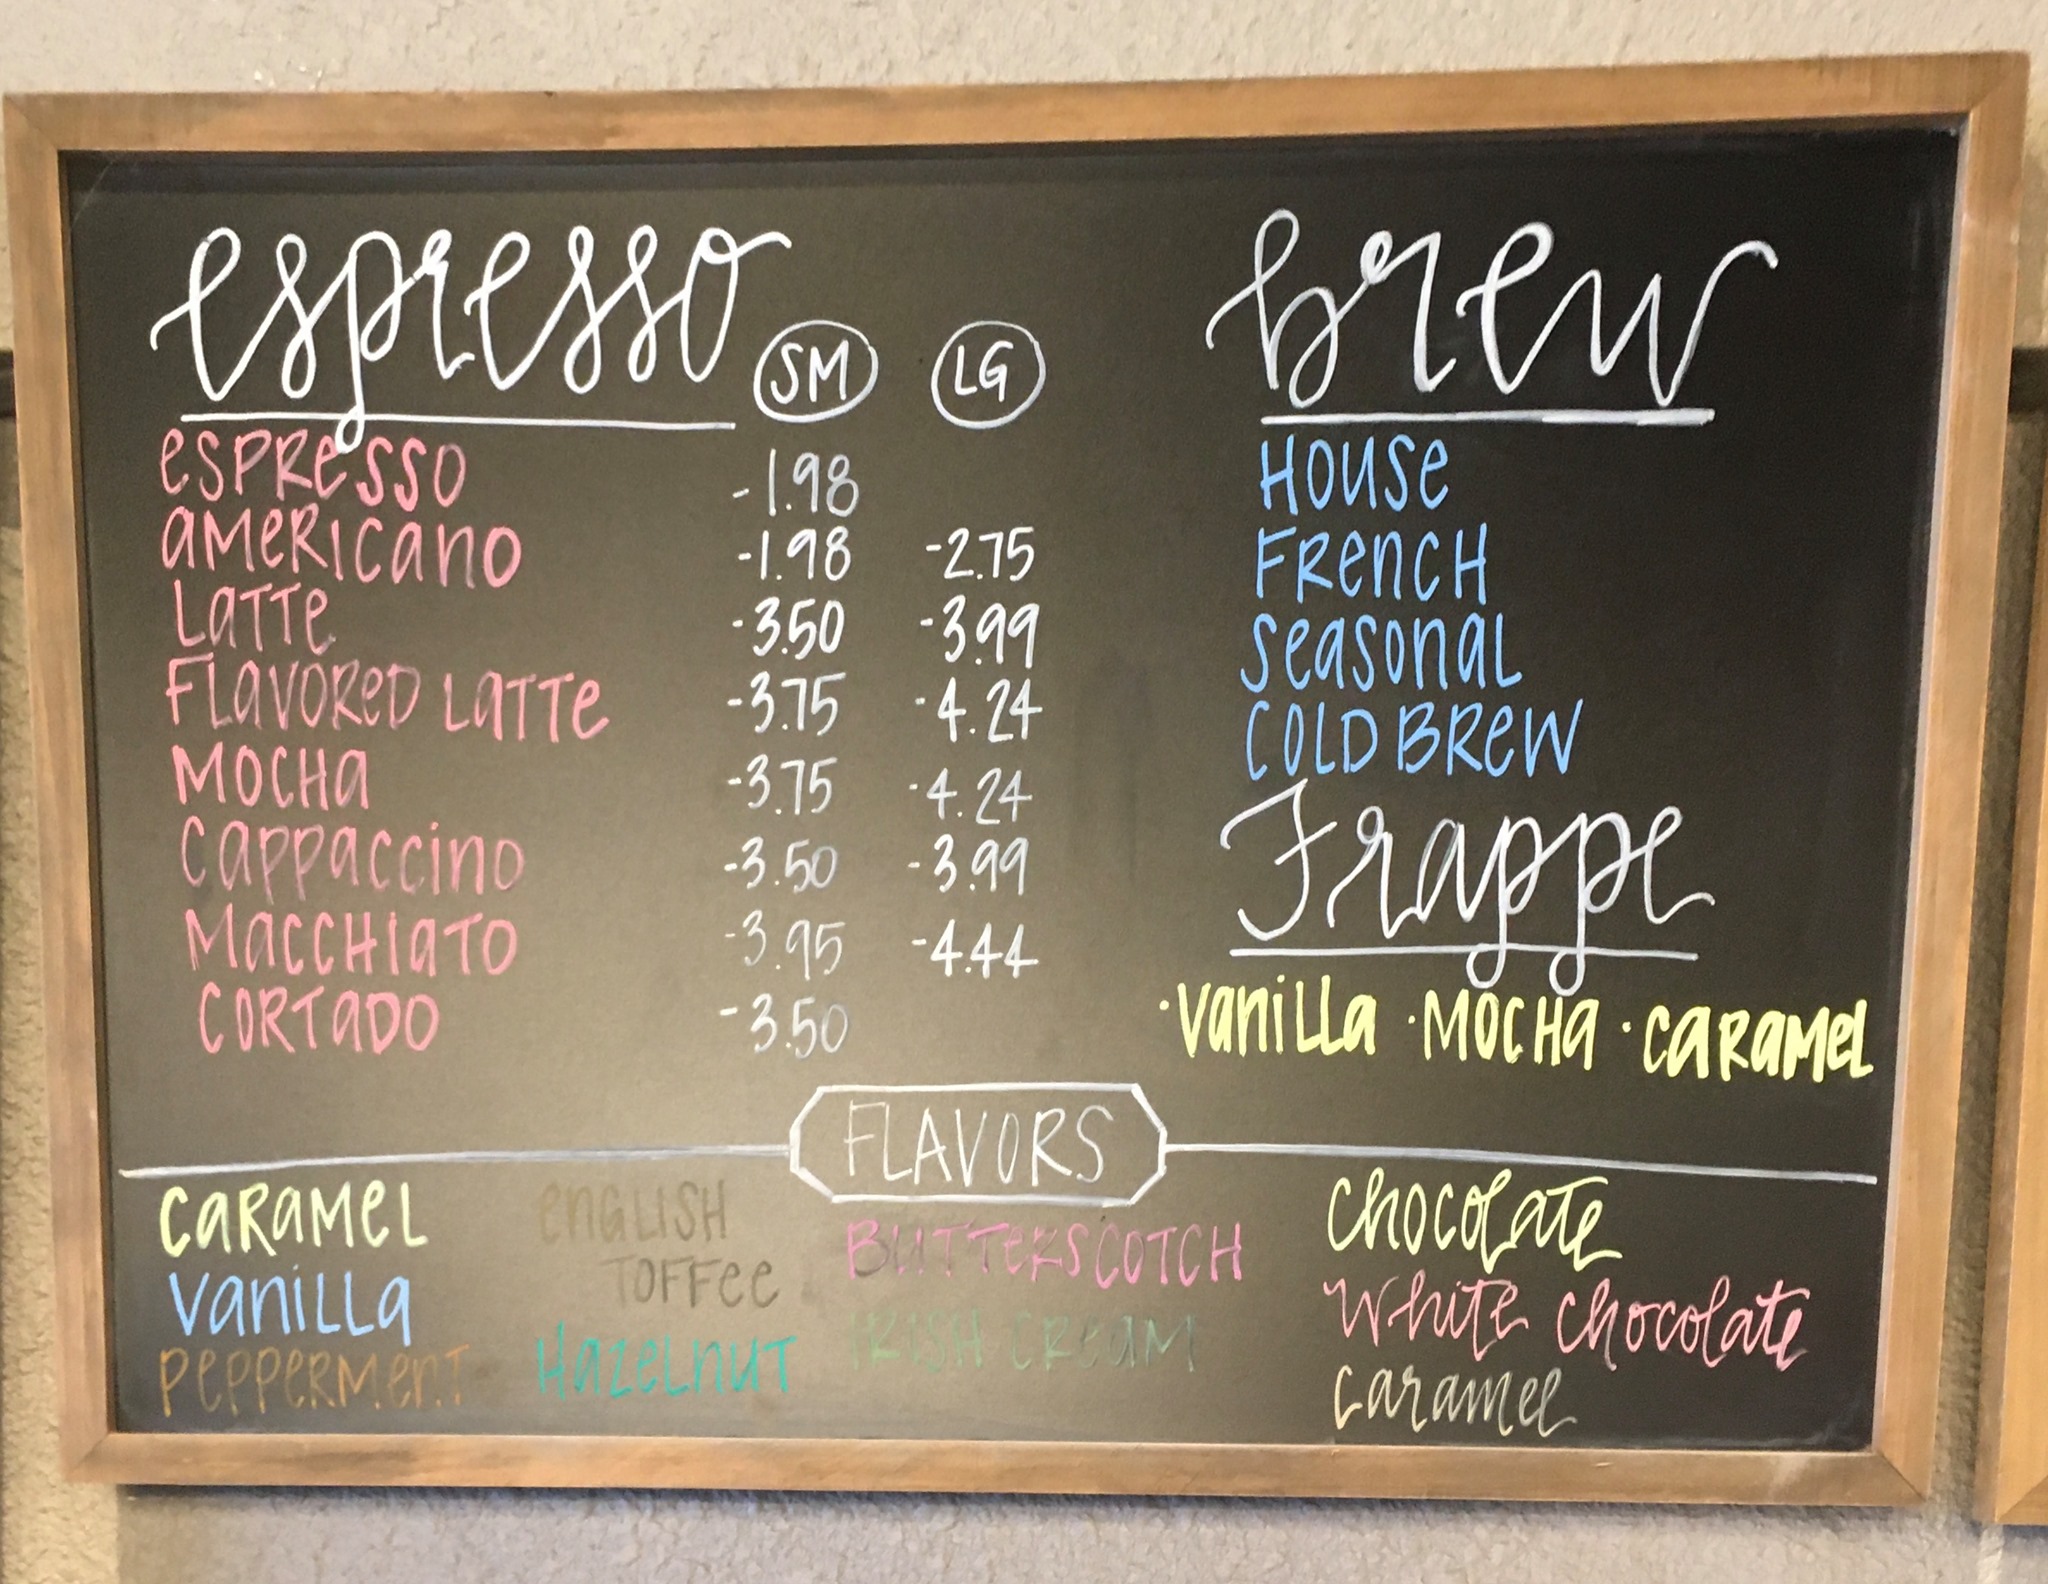 espresso SM LG
ESPRESSO -1.98
AMERICANO -1.98 -2.75
LATTE -3.50 -3.99
FLAVORED LATTE -3.75 -4.24
MOCHA -3.75 -4.24
CAPPACCINO -3.50 -3.99
MACCHIATO -3.95 -4.44
CORTADO -3.50
brew
HOUSE
FRENCH
SEASONAL
COLD BREW
Frappe
·VANILLA ·MOCHA ·CARAMEL
FLAVORS
CARAMEL
VANILLA
PEPPERMENT
ENGLISH
TOFFEE
HAZELNUT
BUTTERSCOTCH
IRISH CREAM
CHOCOLATE
White chocolate
caramel